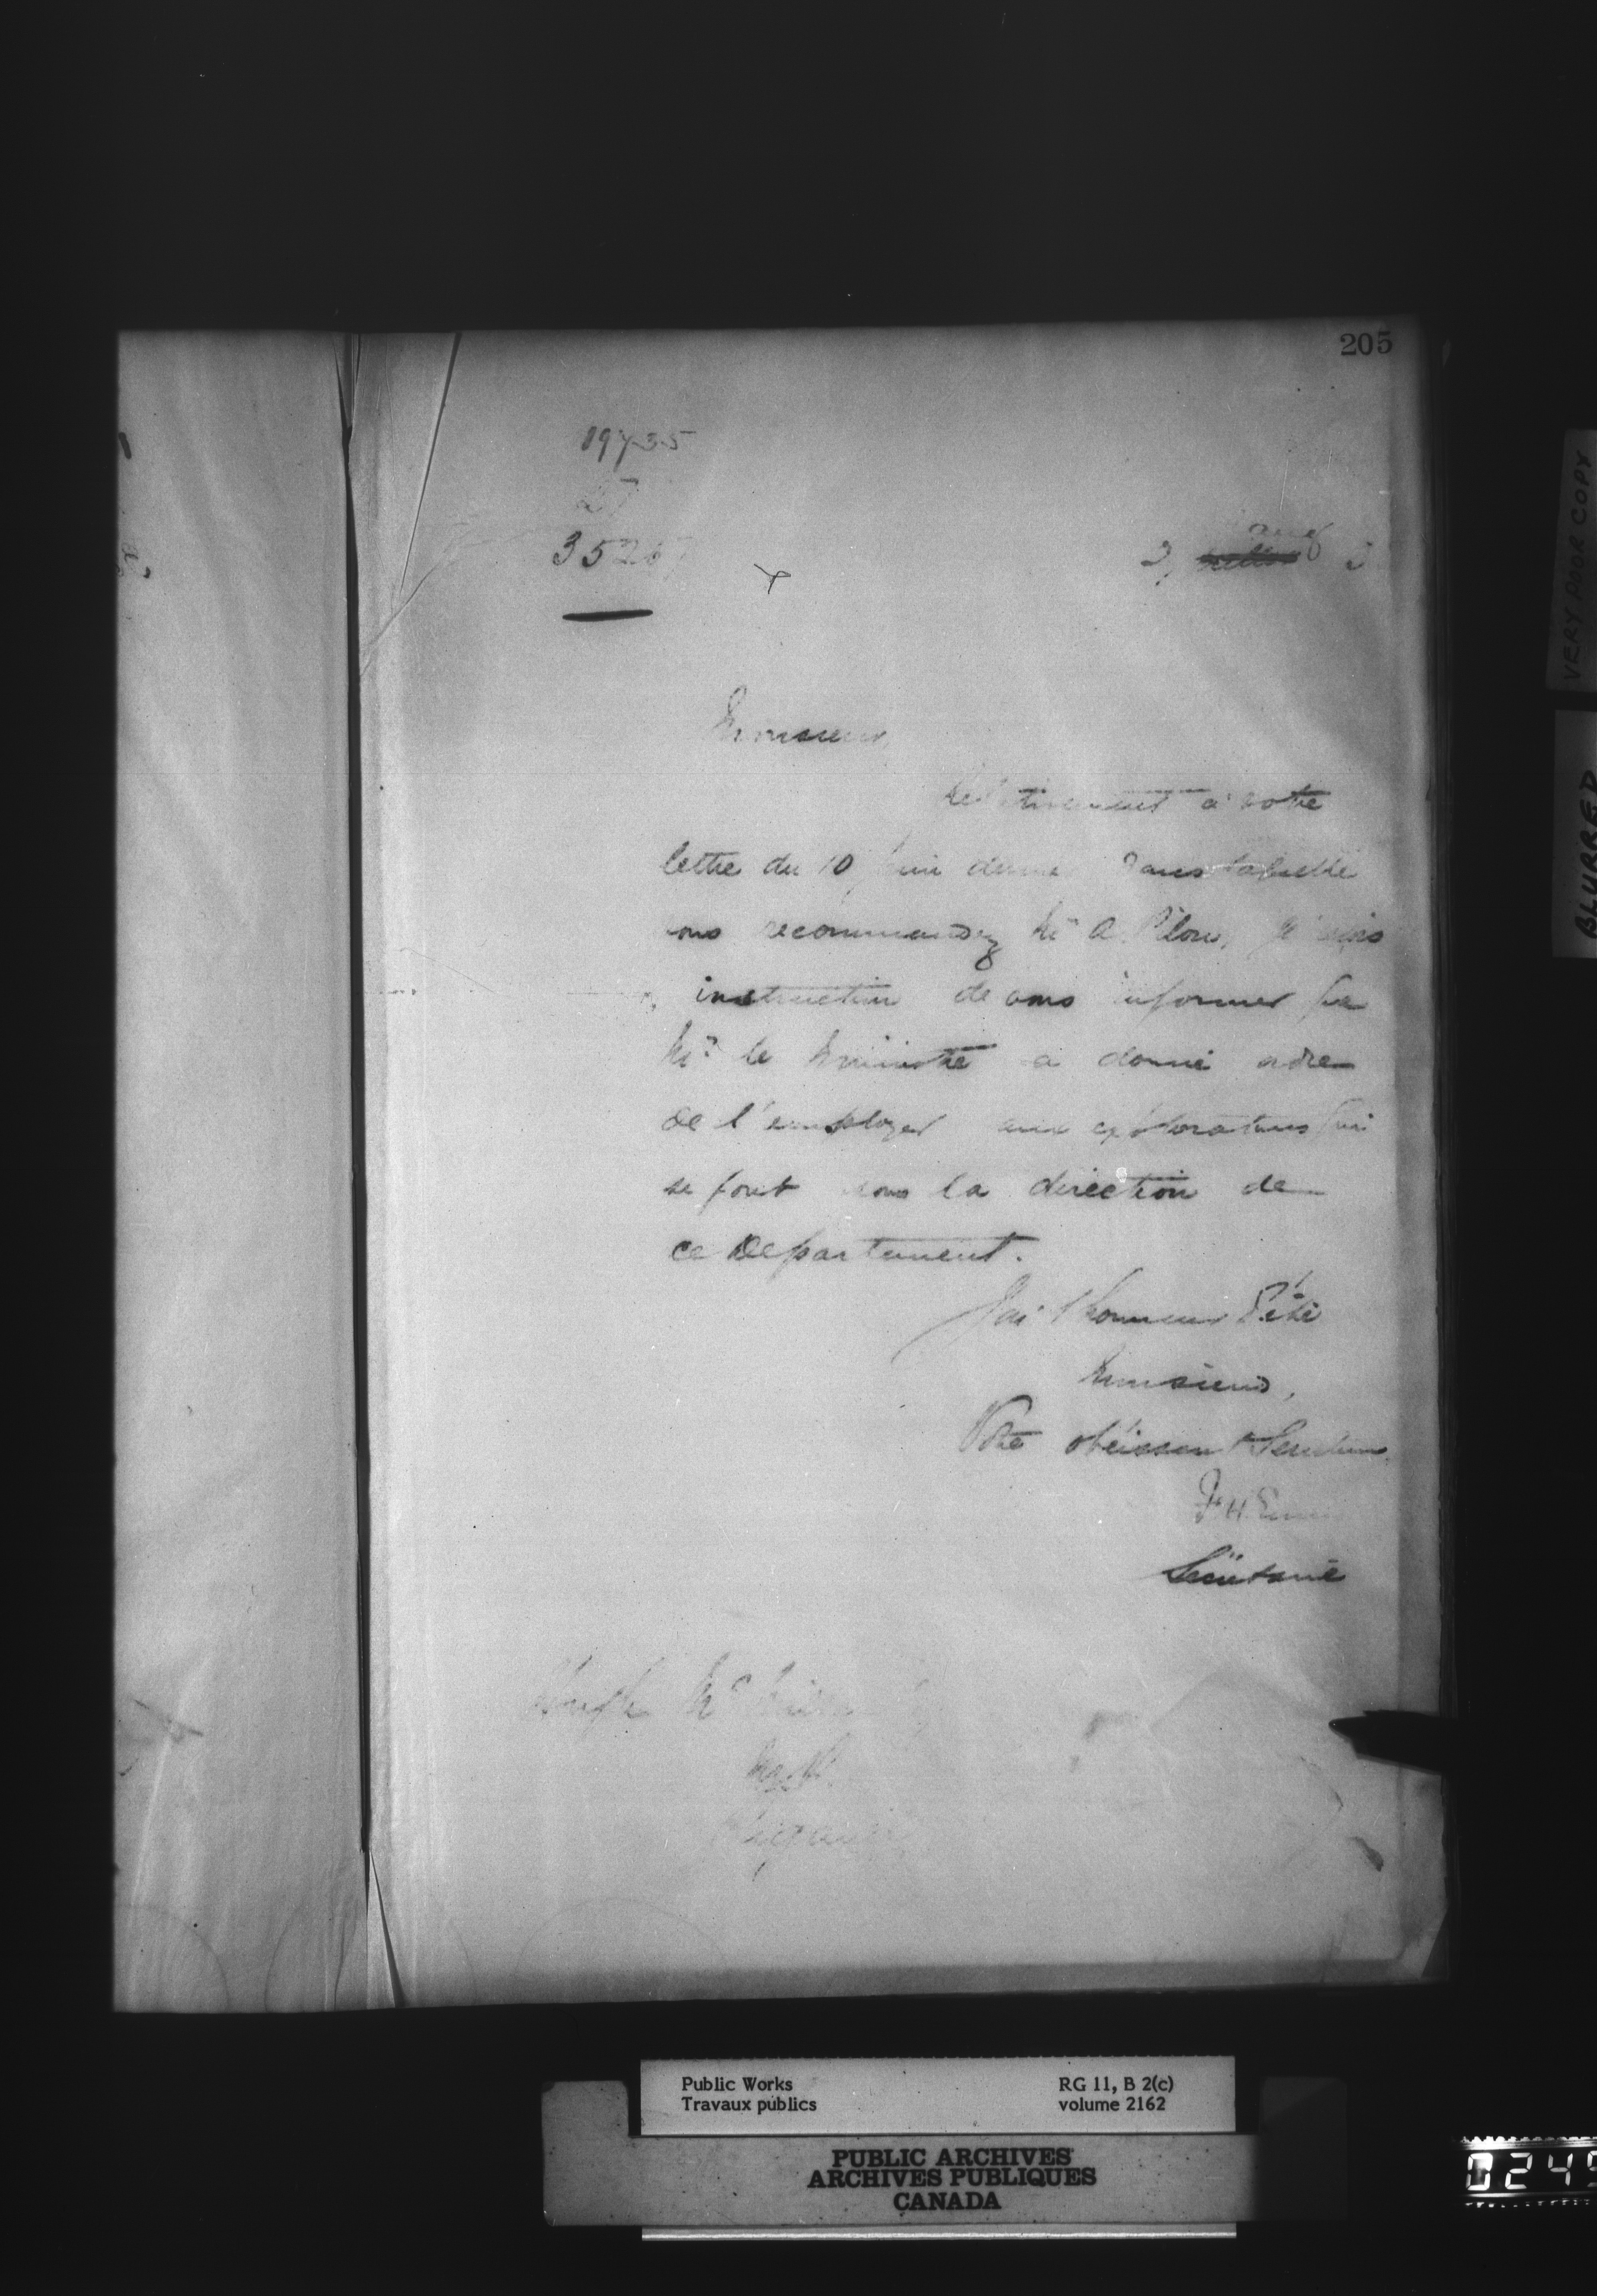 205
19735
3526
2, aug 5
Monsieur,
Relativement à votre
lettre du 10 Juin dernier dans laquelle
vous recommandez Mr A. Pilon, je
instruction de vous informer que
Mr le Ministre a donné ordre
de l'employer aux explorations qui
se font sous la direction de
ce Département.
J'ai l'honneur d'être
Monsieur,
Votre obéissant Serviteur,
F. H. Ennis
Secrétaire
Hugh Mc
Public Works
Travaux publics
RG 11, B 2(c)
volume 2162
PUBLIC ARCHIVES
ARCHIVES PUBLIQUES
CANADA
VERY POOR COPY
BLURRED
0245